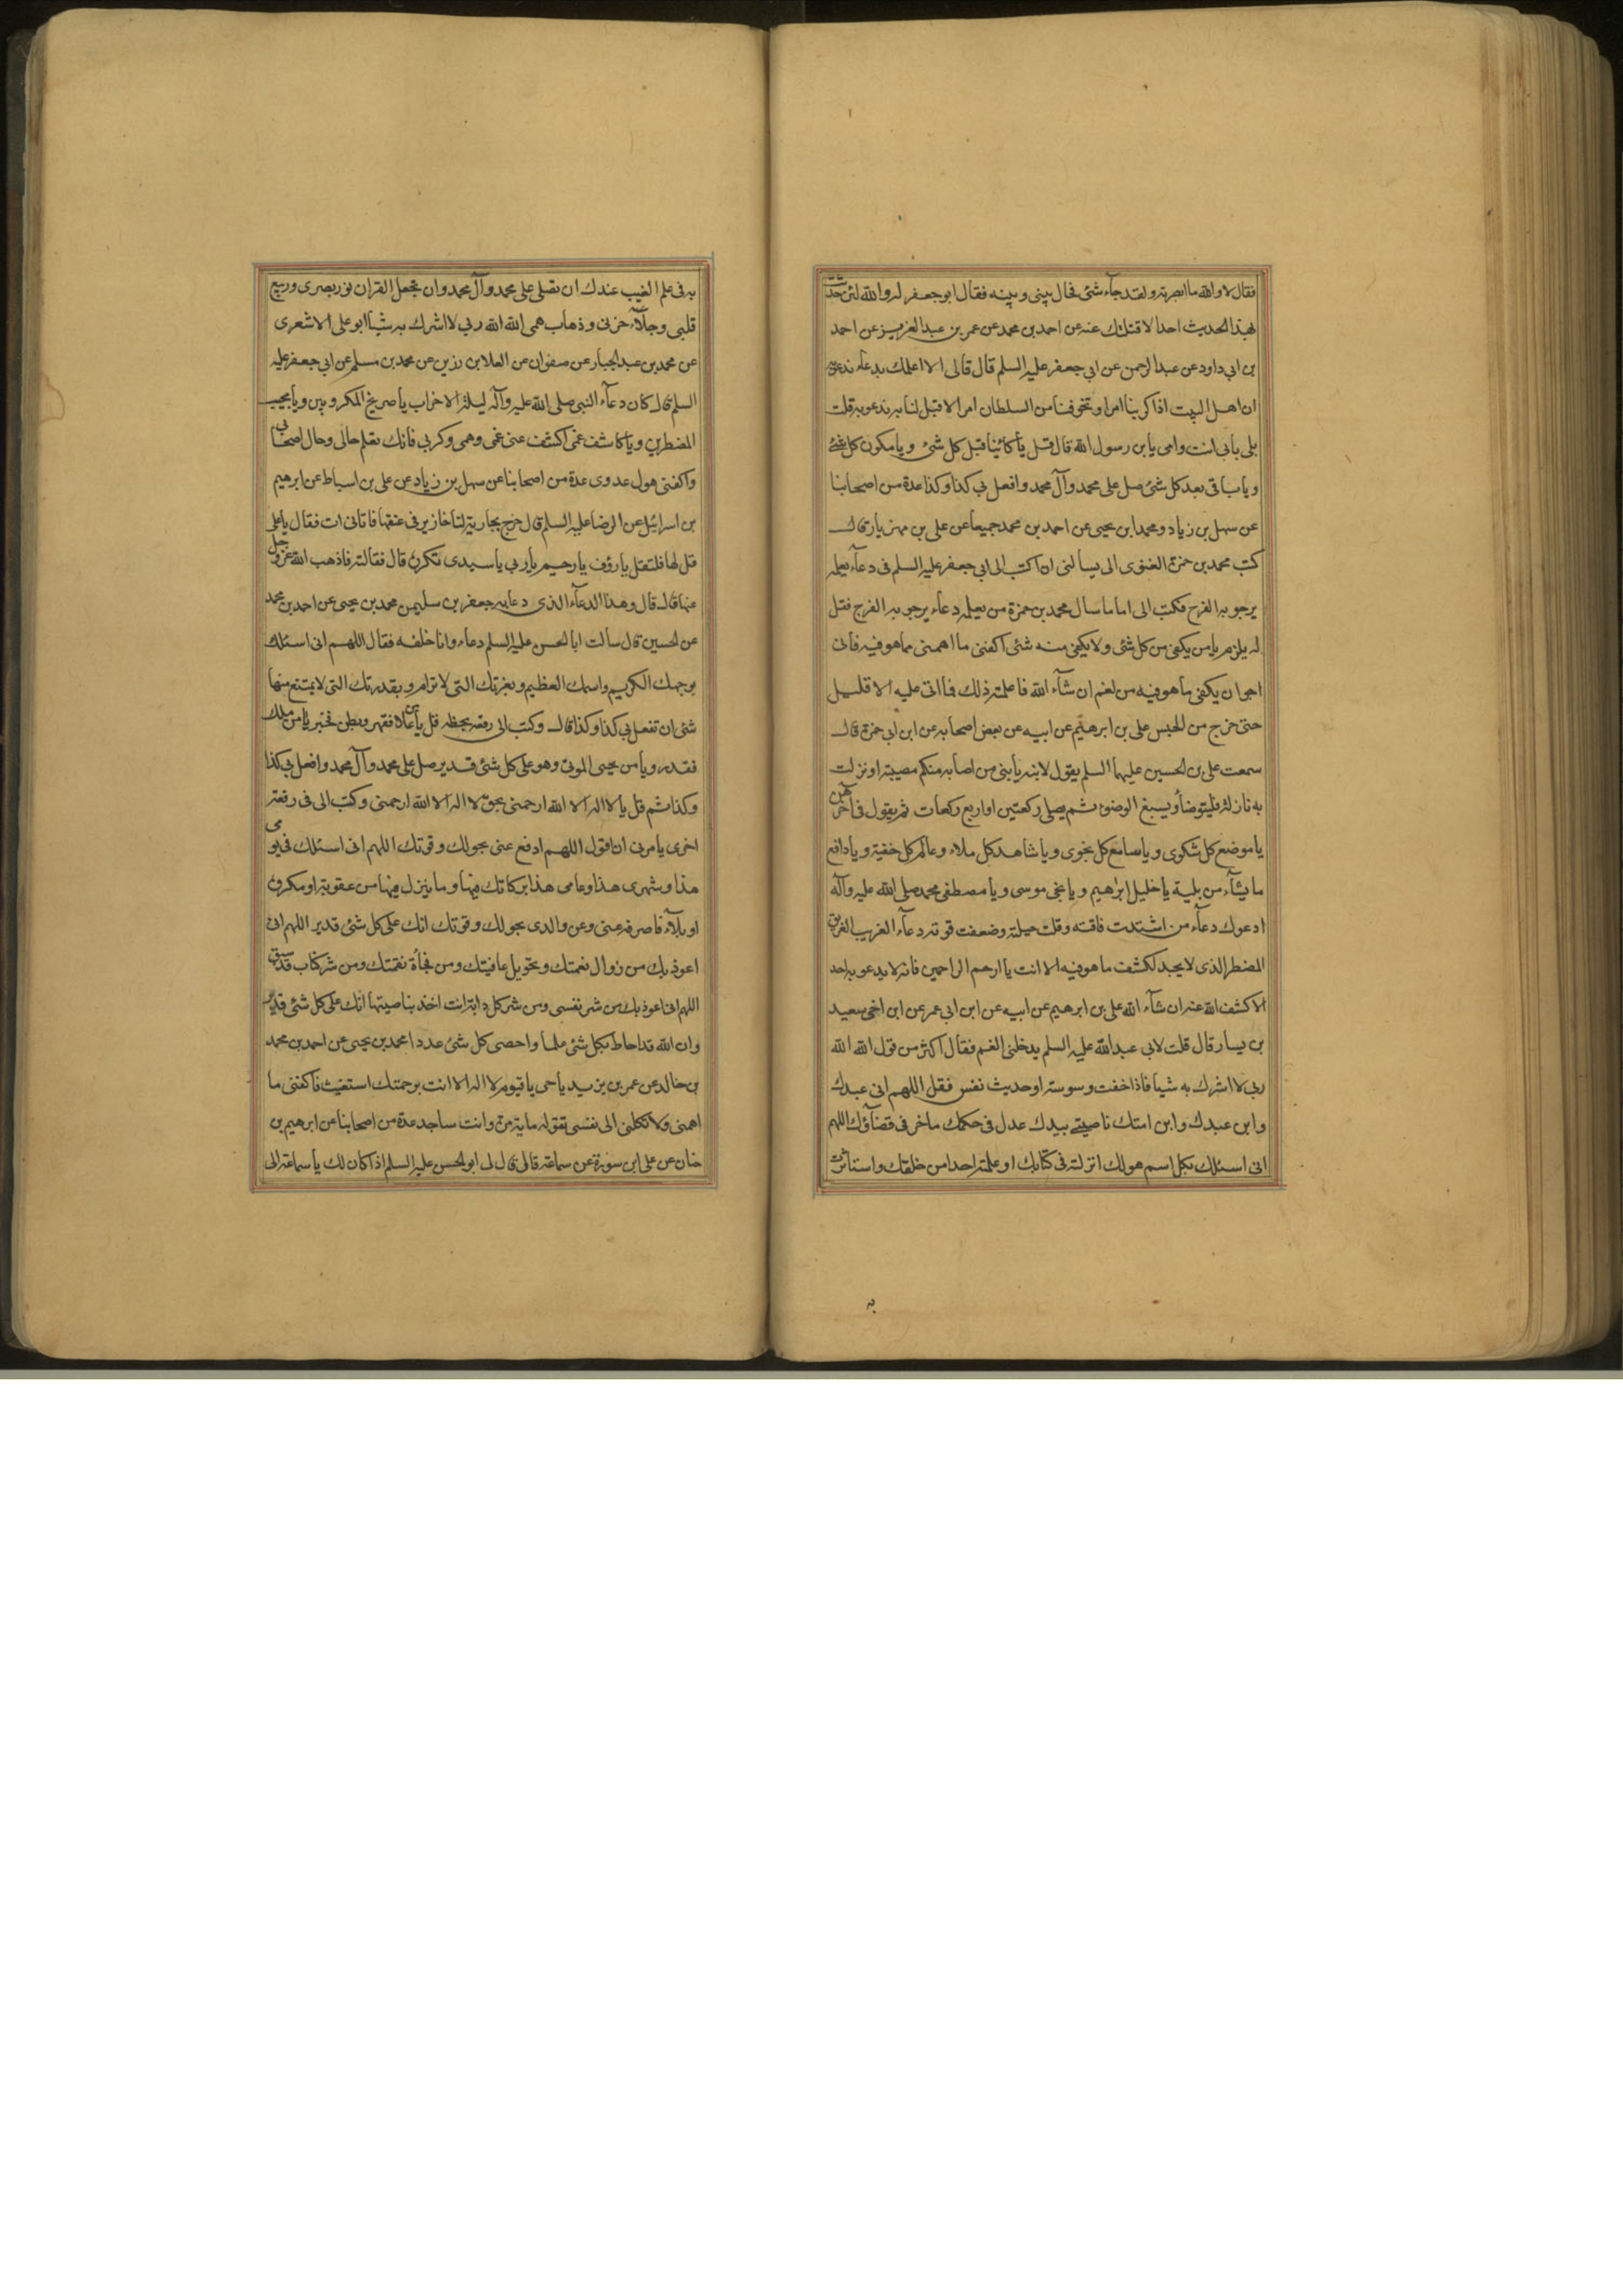 فقال لا والله ما ابصرته ولقد جآء شئ فحال بيني وبينه فقال ابو جعفر له والله لئن حدثت
بهذا الحديث احدا لاقتلتك عنه عن احمد بن محمد عن عمر بن عبد العزيز عن احمد
بن ابي داود عن عبد الرحمن عن ابي جعفر عليه السلم قال قال لى الا اعلمك بدعاء تدعو به
ان اهل البيت اذا كربنا امر او تخوفنا من السلطان امرا لا قبل لنا به ندعو به قلت
بلى بأبي انت وامى يا بن رسول الله قال قل يا كائنا قبل كل شئ ويا مكون كل شئ
ويا باقى بعد كل شئ صل على محمد وآل محمد وافعل بي كذا وكذا عدة من اصحابنا
عن سهل بن زياد ومحمد ابن يحيى عن احمد بن محمد جميعا عن على بن مهزيار قال
كتب محمد بن حمزة الغنوى الى يسالنى ان اكتب الى ابي جعفر عليه السلم فى دعآء يعلمه
يرجو به الفرج فكتب الى اما ما سال محمد بن حمزة من تعليمه دعاء يرجو به الفرج فقل
له يلزم يا من يكفى من كل شئ ولا يكفى منه شئ اكفنى ما اهمنى مما هو فيه فانى
ارجو ان يكفى ما هو فيه من الغم ان شآء الله فاعلمته ذلك فما اتى عليه الا قليل
حتى خرج من الحبس على بن ابرهيم عن ابيه عن بعض اصحابه عن ابن ابي حمزة قال
سمعت على بن الحسين عليهما السلم يقول لابنه يا بنى من اصابه منكم مصيبة او نزلت
به نازلة فليتوضأ ويسبغ الوضوء ثم يصلى ركعتين او اربع ركعات ثم يقول فى آخرهن
يا موضع كل شكوى ويا سامع كل نجوى ويا شاهد كل ملاء وعالم كل خفية ويا دافع
ما يشآء من بلية يا خليل ابرهيم ويا نجى موسى ويا مصطفى محمد صلى الله عليه وآله
ادعوك دعآء من اشتدت فاقته وقلت حيلته وضعفت قوته دعآء الغريب الغريق
المضطر الذى لا يجد لكشف ما هو فيه الا انت يا ارحم الراحمين فانه لا يدعو به احد
الا كشف الله عنه ان شآء الله على بن ابرهيم عن ابيه عن ابن ابى عمر عن ابن اخى سعيد
بن يسار قال قلت لابي عبد الله عليه السلم يدخلنى الغم فقال اكثر من قول الله الله
ربى لا اشرك به شيا فاذا خفت وسوسته او حديث نفس فقل اللهم انى عبدك
وابن عبدك وابن امتك ناصيتى بيدك عدل فى حكمك ماض فى قضآؤك اللهم
انى اسئلك بكل اسم هو لك انزلته فى كتابك او علمته احدا من خلقك واستاثرت
به
به فى علم الغيب عندك ان تصلى على محمد وآل محمد وان تجعل القران نور بصرى وربيع
قلبى وجلآء حزنى وذهاب همى الله الله ربي لا اشرك به شيأ ابو على الاشعرى
عن محمد بن عبد الجبار عن صفوان عن العلا بن رزين عن محمد بن مسلم عن ابي جعفر عليه
السلم قال كان دعآء النبى صلى الله عليه وآله ليلة الاحزاب يا صريخ المكروبين ويا مجيب
المضطرين ويا كاشف غمى اكشف عنى غمى وهمى وكربى فانك تعلم حالى وحال اصحابى
واكفنى هول عدوى عدة من اصحابنا عن سهل بن زياد عن على بن اسباط عن ابرهيم
بن اسرائيل عن الرضا عليه السلم قال خرج بجارية لنا خنازير فى عنقها فاتانى ات فقال يا على
قل لها فلتقل يا رؤف يا رحيم يا ربي يا سيدى تكرره قال فقالته فاذهب الله عز وجل
عنها قال قال وهذا الدعآء الذى دعا به جعفر بن سليمن محمد بن يحيى عن احمد بن محمد
عن الحسين قال سألت ابا الحسن عليه السلم دعاء وانا خلفه فقال اللهم انى اسئلك
بوجهك الكريم واسمك العظيم وبعزتك التى لا ترام وبقدرتك التى لا يمتنع منها
شئ ان تفعل بي كذا وكذا قال وكتب الى رقعه بخطه قل يا من علا فقهر وبطن فخبر يا من ملك
فقدر ويا من يحيى الموتى وهو على كل شئ قدير صل على محمد وآل محمد وافعل بي كذا
وكذا ثم قل يا لا اله الا الله ارحمنى بحق لا اله الا الله ارحمنى وكتب الى فى رقعة
اخرى يأمرنى ان اقول اللهم ادفع عنى بحولك وقوتك اللهم انى اسئلك فى يومى
هذا وشهرى هذا وعامى هذا بركاتك فيها وما ينزل فيها من عقوبة او مكروه
او بلآء فاصرفه عنى وعن والدى بحولك وقوتك انك على كل شئ قدير اللهم انى
اعوذ بك من زوال نعمتك وتحويل عافيتك ومن فجأة نقمتك ومن شر كتاب قد سبق
اللهم انى اعوذ بك من شر نفسى ومن شر كل دابة انت اخذ بناصيتها انك على كل شئ قدير
وان الله قد احاط بكل شئ علما واحصى كل شئ عددا محمد بن يحيى عن احمد بن محمد
بن خالد عن عمر بن يزيد يا حى يا قيوم لا اله الا انت برحمتك استغيث فاكفنى ما
اهمنى ولا تكلنى الى نفسى تقوله ماية مرة وانت ساجد عدة من اصحابنا عن ابرهيم بن
حنان عن على ابن سورة عن سماعة قال قال لى ابو الحسن عليه السلم اذا كان لك يا سماعة الى